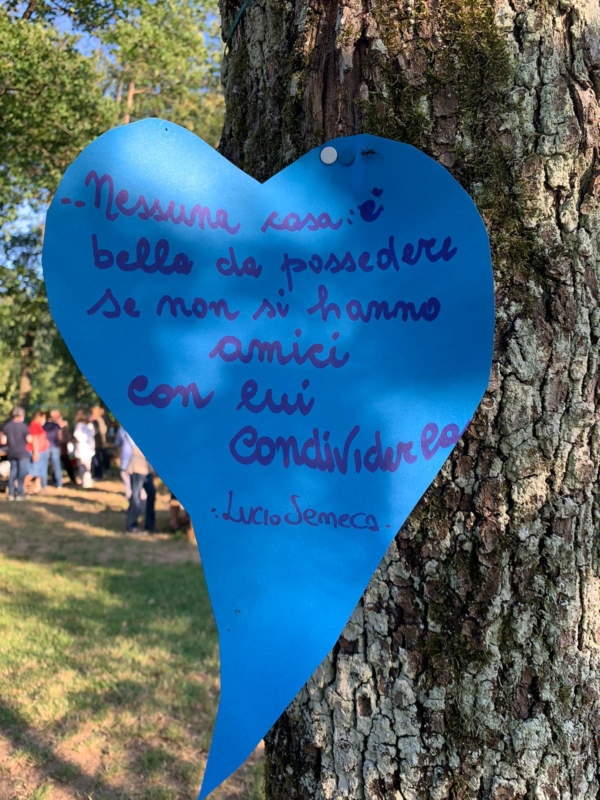 ..Nessuna cosa è
bella da possedere
se non si hanno
amici
con cui
condividerla
Lucio Semeca